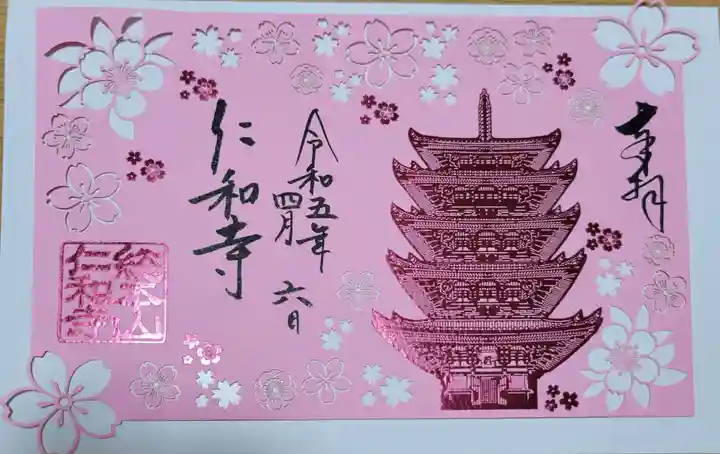 奉拝
令和五年
四月
六日
仁和寺
総本山
仁和寺